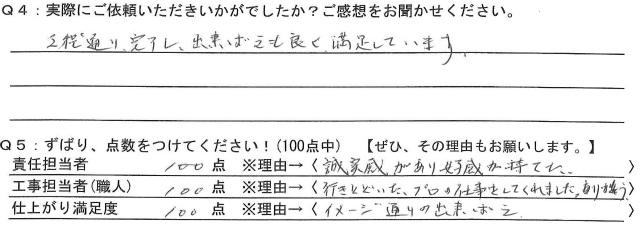 Q4：実際にご依頼いただきいかがでしたか？ご感想をお聞かせください。
工程通り、完了し、出来ばえも良く満足しています。
Q5：ずばり、点数をつけてください！（100点中）　【ぜひ、その理由もお願いします。】
責任担当者　100 点　※理由→〈 誠実感があり好感が持てた。 〉
工事担当者（職人）　100 点　※理由→〈 行きとどいた、プロの仕事をしてくれました。有り難う 〉
仕上がり満足度　100 点　※理由→〈 イメージ通りの出来ばえ 〉